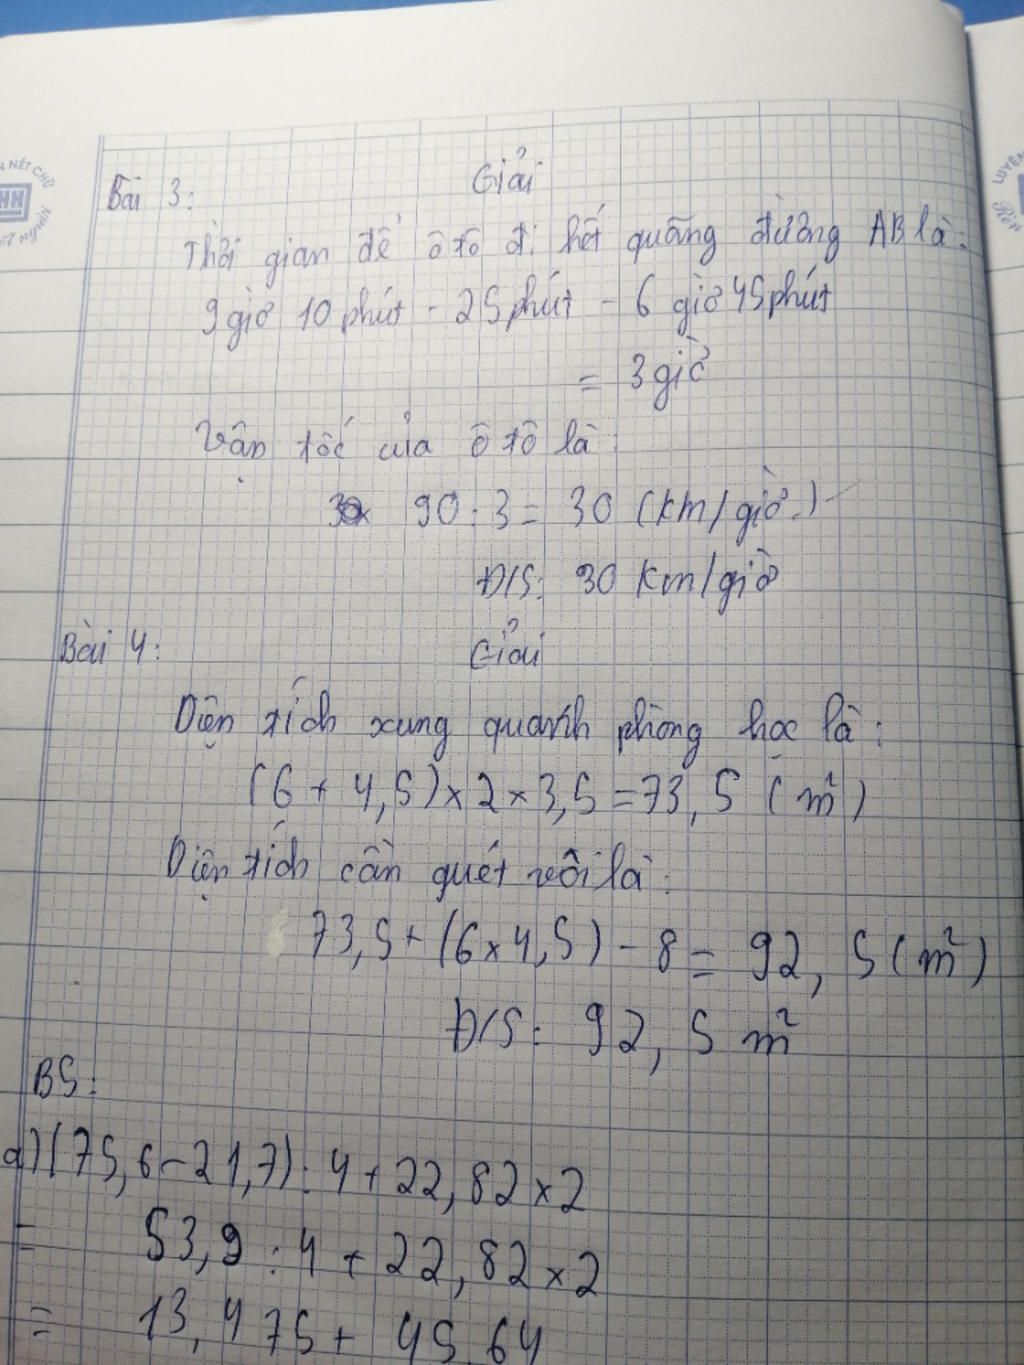 N NÉT CHỮ
LUYỆN
Bài 3:
Giải
Thời gian để ô tô đi hết quãng đường AB là:
9 giờ 10 phút - 25 phút - 6 giờ 45 phút
= 3 giờ
Vận tốc của ô tô là:
90 : 3 = 30 (km/giờ.)
Đ/S: 30 km/giờ
Bài 4:
Giải
Diện tích xung quanh phòng học là:
(6 + 4,5) x 2 x 3,5 = 73,5 (m²)
Diện tích cần quét vôi là:
73,5 + (6 x 4,5) - 8 = 92,5 (m²)
Đ/S: 92,5 m²
B5:
a) (75,6 - 21,7) : 4 + 22,82 x 2
= 53,9 : 4 + 22,82 x 2
= 13,475 + 45,64